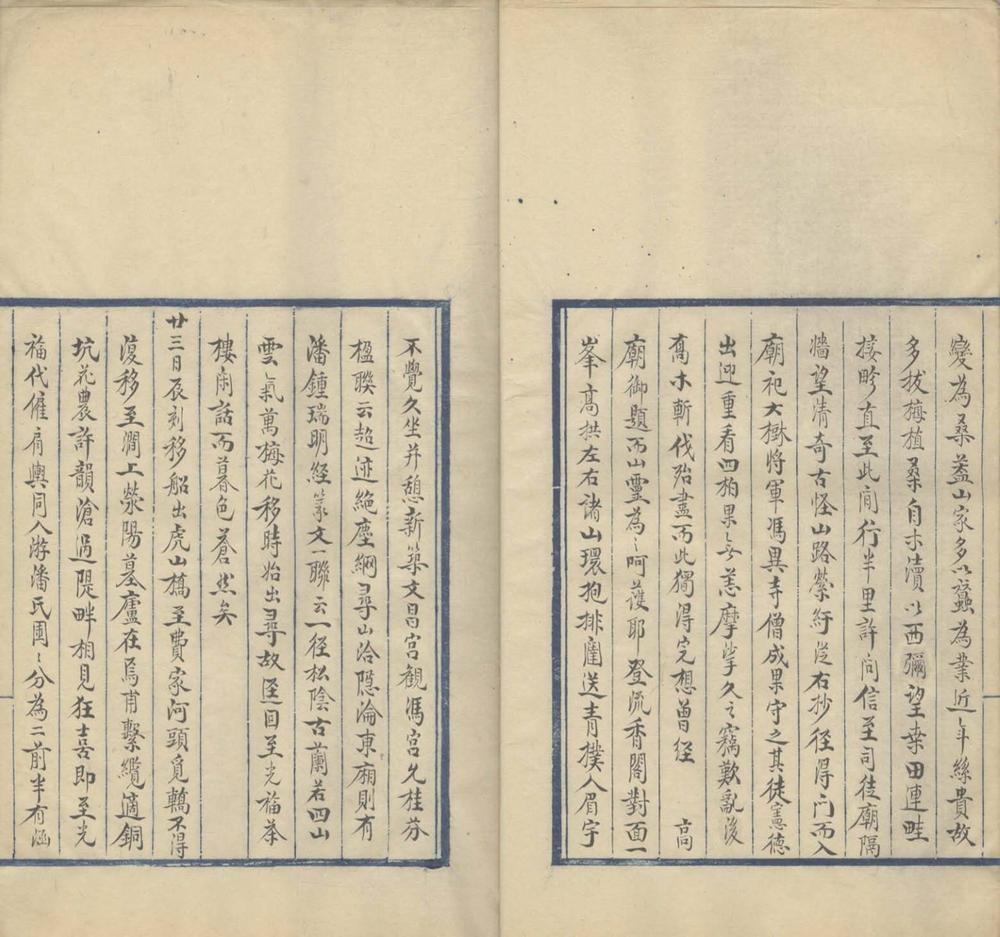 變為桑葢山家多以蠶為業近年絲貴故
多拔梅植桑自木瀆以西彌望桑田連畦
接畛直至此間行半里許問信至司徒廟隔
墻望清奇古怪山路縈紆從右抄徑得門而入
廟祀大樹將軍馮異寺僧成果守之其徒憲德
出迎重看四柏果々無恙摩挲久之竊歎亂後
喬木斬伐殆盡而此獨得完想曾經 高
廟御題而山靈為々呵護耶登流香閣對面一
峯高拱左右諸山環抱排闥送青撲人眉宇
不覺久坐并憩新築文昌宮觀馮宮允桂芬
楹聯云超迹絕塵網尋山洽隱淪東廂則有
潘鍾瑞明經篆文一聯云一徑松陰古蘭若四山
雲氣萬梅花移時始出尋故徑回至光福茶
樓閑話而暮色蒼然矣
廿三日辰刻移船出虎山橋至費家河頭覓轎不得
復移至澗上滎陽墓廬在焉甫繫纜適銅
坑花農許韻滄過隄畔相見狂喜即至光
福代僱肩輿同入游潘氏園々分為二前半有涵